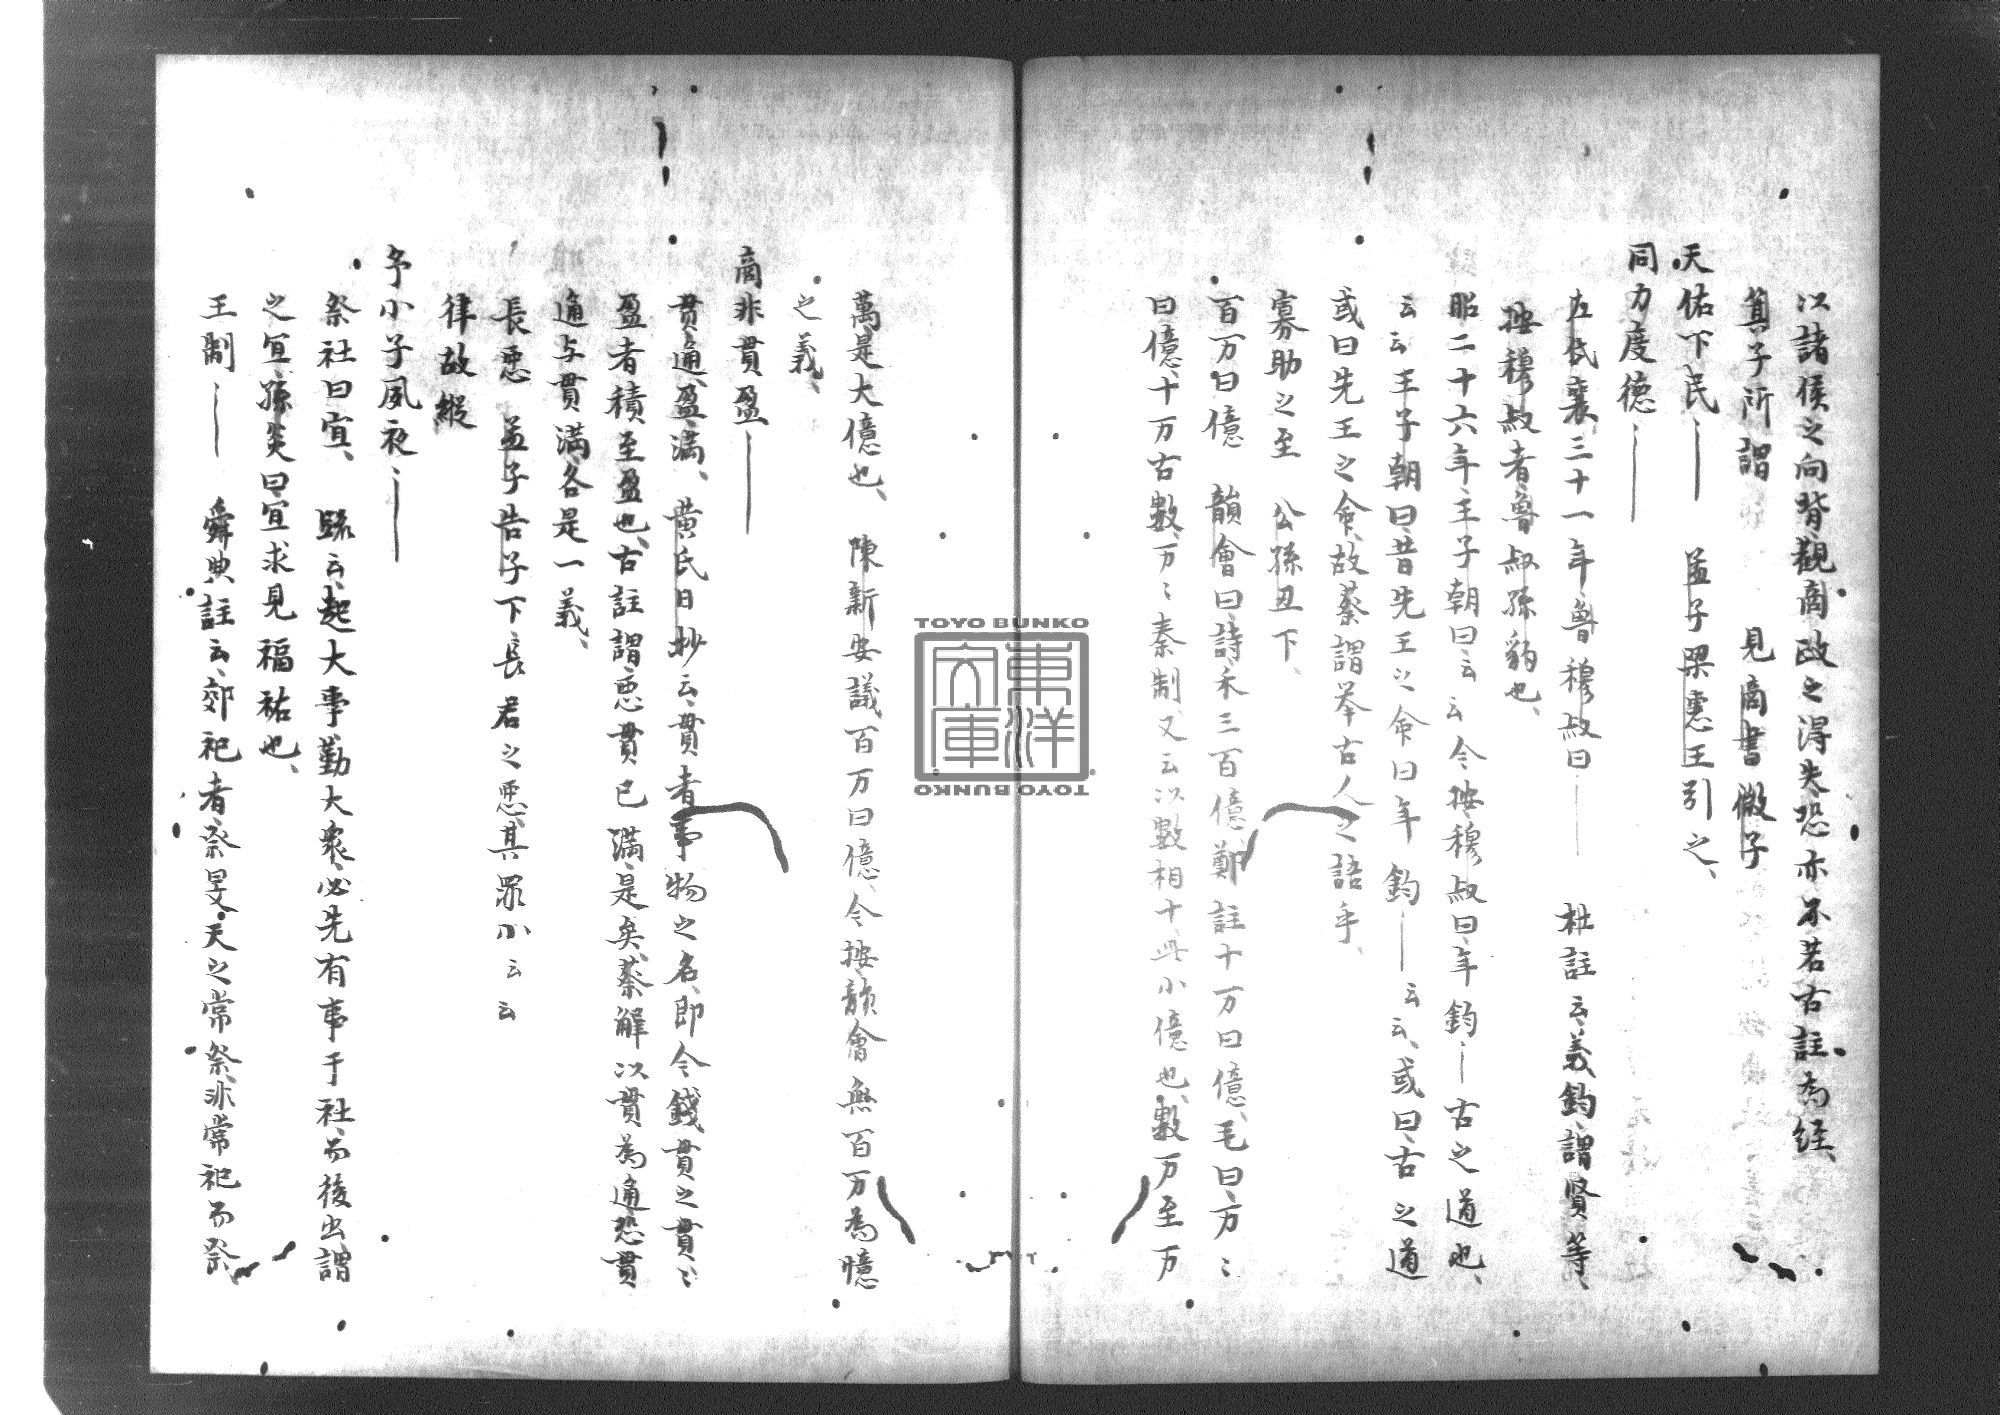 以諸侯之向背觀商政之得失恐亦不若古註為経、
箕子所謂 見商書微子
天佑下民── 孟子梁惠王引之、
同力度德──
左氏襄三十一年魯穆叔曰── 杜註云義鈞謂賢等、
按穆叔者魯叔孫豹也、
昭二十六年王子朝曰云云今按穆叔曰年鈞─古之道也、
云云王子朝曰昔先王之命曰年鈞──云云、或曰古之道
或曰先王之命故蔡謂举古人之語乎、
寡助之至 公孫丑下、
百万曰億 韻會曰詩禾三百億鄭註十万曰億、毛曰万〻
曰億、十万古數、万〻秦制又云以數相十、此小億也、數万至万
萬是大億也、 陳新安議百万曰億、今按韻會無百万為億
之義、
商非貫盈──
貫通、盈満、 黄氏日抄云貫者事物之名、即今錢貫之貫〻
盈者積至盈也、古註謂悪貫已満是矣、蔡解以貫為通恐貫
通与貫満各是一義、
長悪 孟子告子下長君之悪其罪小云云
律故縦
予小子夙夜〻──
祭社曰宜、 疏云起大事動大衆必先有事于社而後出謂
之宜、孫炎曰宜求見福祐也、
王制── 舜典註云郊祀者祭旻天之常祭、非常祀而祭
TOYO BUNKO
東洋文庫
TOYO BUNKO